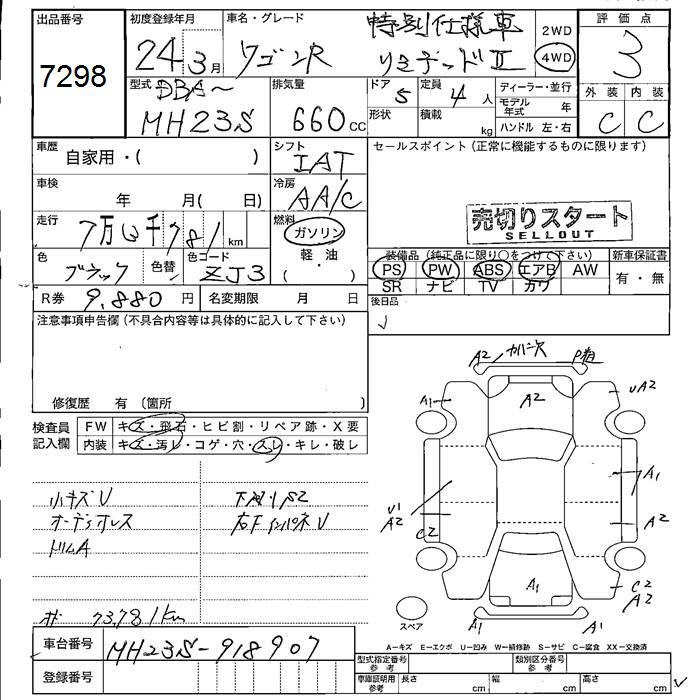 出品番号 初度登録年月 車名・グレード 評価点
7298 24年3月 ワゴンR 特別仕様車 リミテッドⅡ 2WD 4WD 3
型式 DBA〜 MH23S 排気量 660cc ドア 5 定員 4人 ディーラー・並行 外装 内装
形状 積載 kg モデル年式 年 C C
ハンドル 左・右
車歴 自家用・( ) シフト IAT セールスポイント (正常に機能するものに限ります)
車検 年 月( 日) 冷房 AA/C
走行 7万 千781 km 燃料 ガソリン 売切りスタート
軽・油 SELLOUT
( )
色 ブラック 色替 色コード ZJ3 装備品 (純正品に限り○をつけて下さい) 新車保証書
PS PW ABS エアB AW 有・無
SR ナビ TV カワ
R券 9,880円 名変期限 月 日 後日品
注意事項申告欄 (不具合内容等は具体的に記入して下さい)
修復歴 有 〔箇所 〕
検査員記入欄 FW キズ・飛石・ヒビ割・リペア跡・X要
内装 キズ・汚レ・コゲ・穴・スレ・キレ・破レ
小キズU 下廻りS2
オーディオレス 右FインパネU
トリムA
73,781km
車台番号 MH23S-918907
登録番号
A2 P
A1 A2 UA2
U1 A1
A2 A2
C2
A1 C2
A2
A1 A1
スペア
A−キズ E−エクボ U−凹み W−補修跡 S−サビ C−腐食 XX−交換済
型式指定番号 参考 類別区分番号 参考
車庫証明用 参考 長さ cm 幅 cm 高さ cm